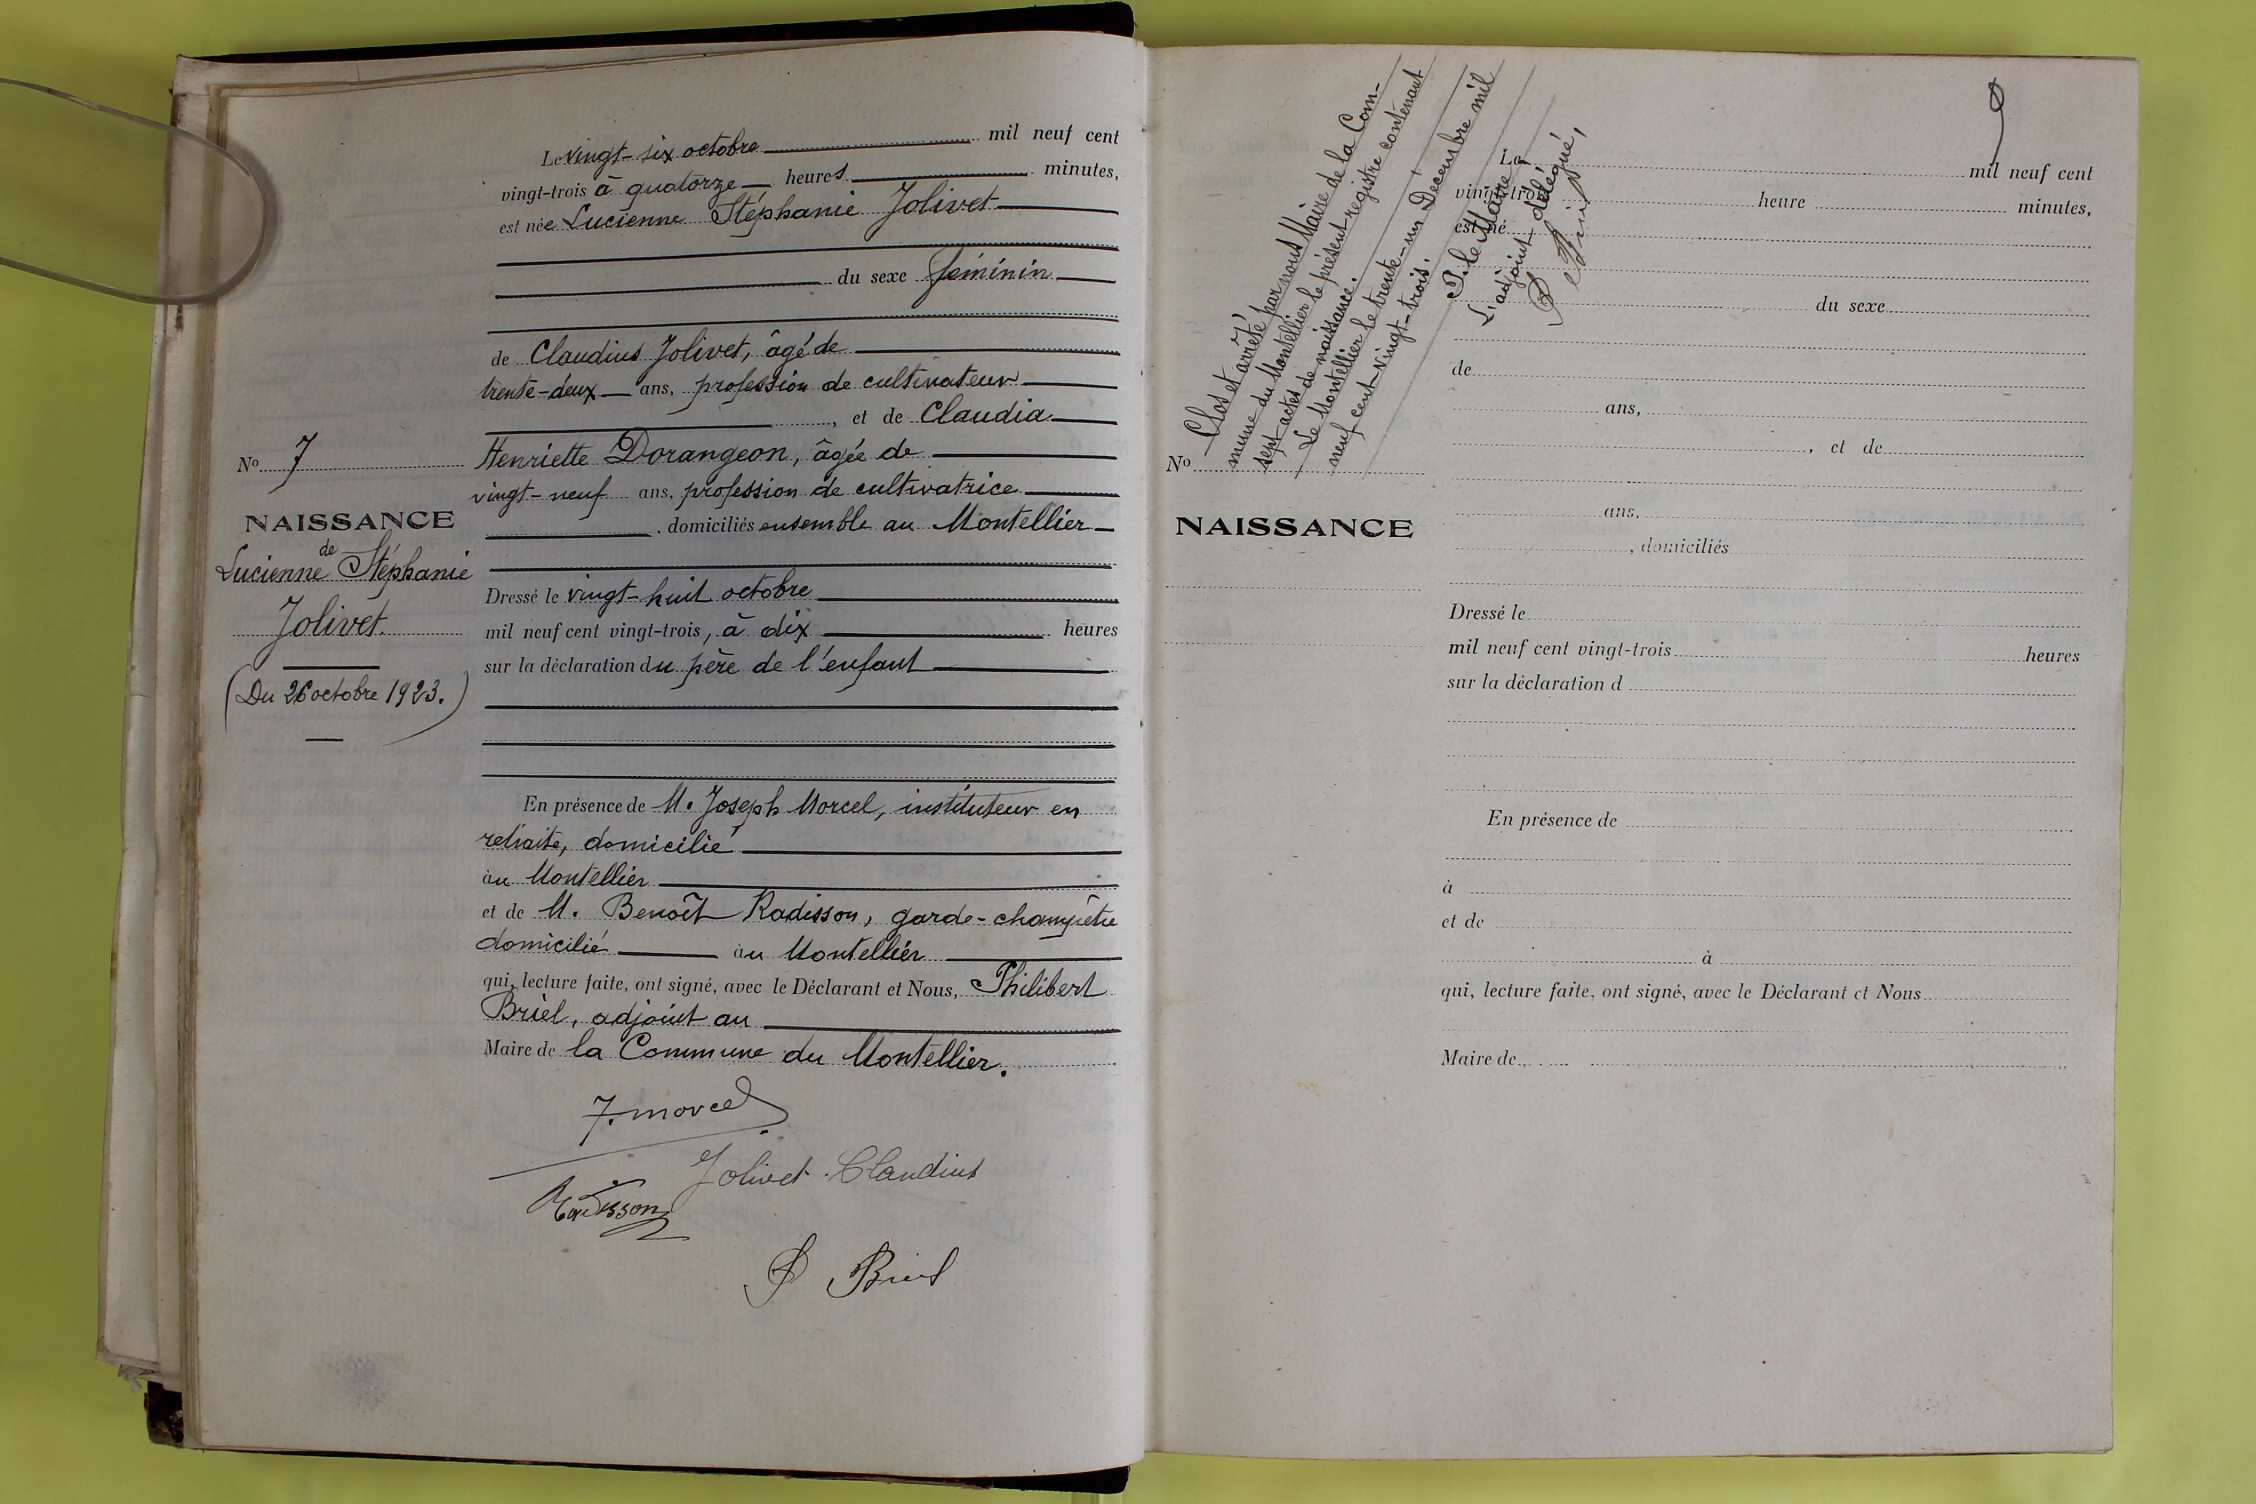 Le vingt-six octobre mil neuf cent
vingt-trois à quatorze heures minutes,
est née Lucienne Stéphanie Jolivet
du sexe féminin
de Claudius Jolivet, âgé de
trente-deux ans, profession de cultivateur
, et de Claudia
Henriette Dorangeon, âgée de
vingt-neuf ans, profession de cultivatrice
, domiciliés ensemble au Montellier
Dressé le vingt-huit octobre
mil neuf cent vingt-trois, à dix heures
sur la déclaration du père de l'enfant
En présence de M. Joseph Morcel, instituteur en
retraite, domicilié
au Montellier
et de M. Benoît Radisson, garde-champêtre
domicilié au Montellier
qui, lecture faite, ont signé, avec le Déclarant et Nous, Philibert
Briel, adjoint au
Maire de la Commune du Montellier.
J. morcel
Jolivet Claudius
Radisson
P Briel
No 7
NAISSANCE
de
Lucienne Stéphanie
Jolivet.
(Du 26 octobre 1923.)
Clos et arrêté par nous Maire de la Com-
mune du Montellier le présent registre contenant
sept actes de naissance.
Le Montellier le trente-un Décembre mil
neuf cent-vingt-trois.
P. le Maire
L'adjoint délégué,
P Briel
No
NAISSANCE
Le mil neuf cent
vingt-trois heure minutes,
est né
du sexe
de
ans,
, et de
ans,
, domiciliés
Dressé le
mil neuf cent vingt-trois heures
sur la déclaration d
En présence de
à
et de
à
qui, lecture faite, ont signé, avec le Déclarant et Nous
Maire de